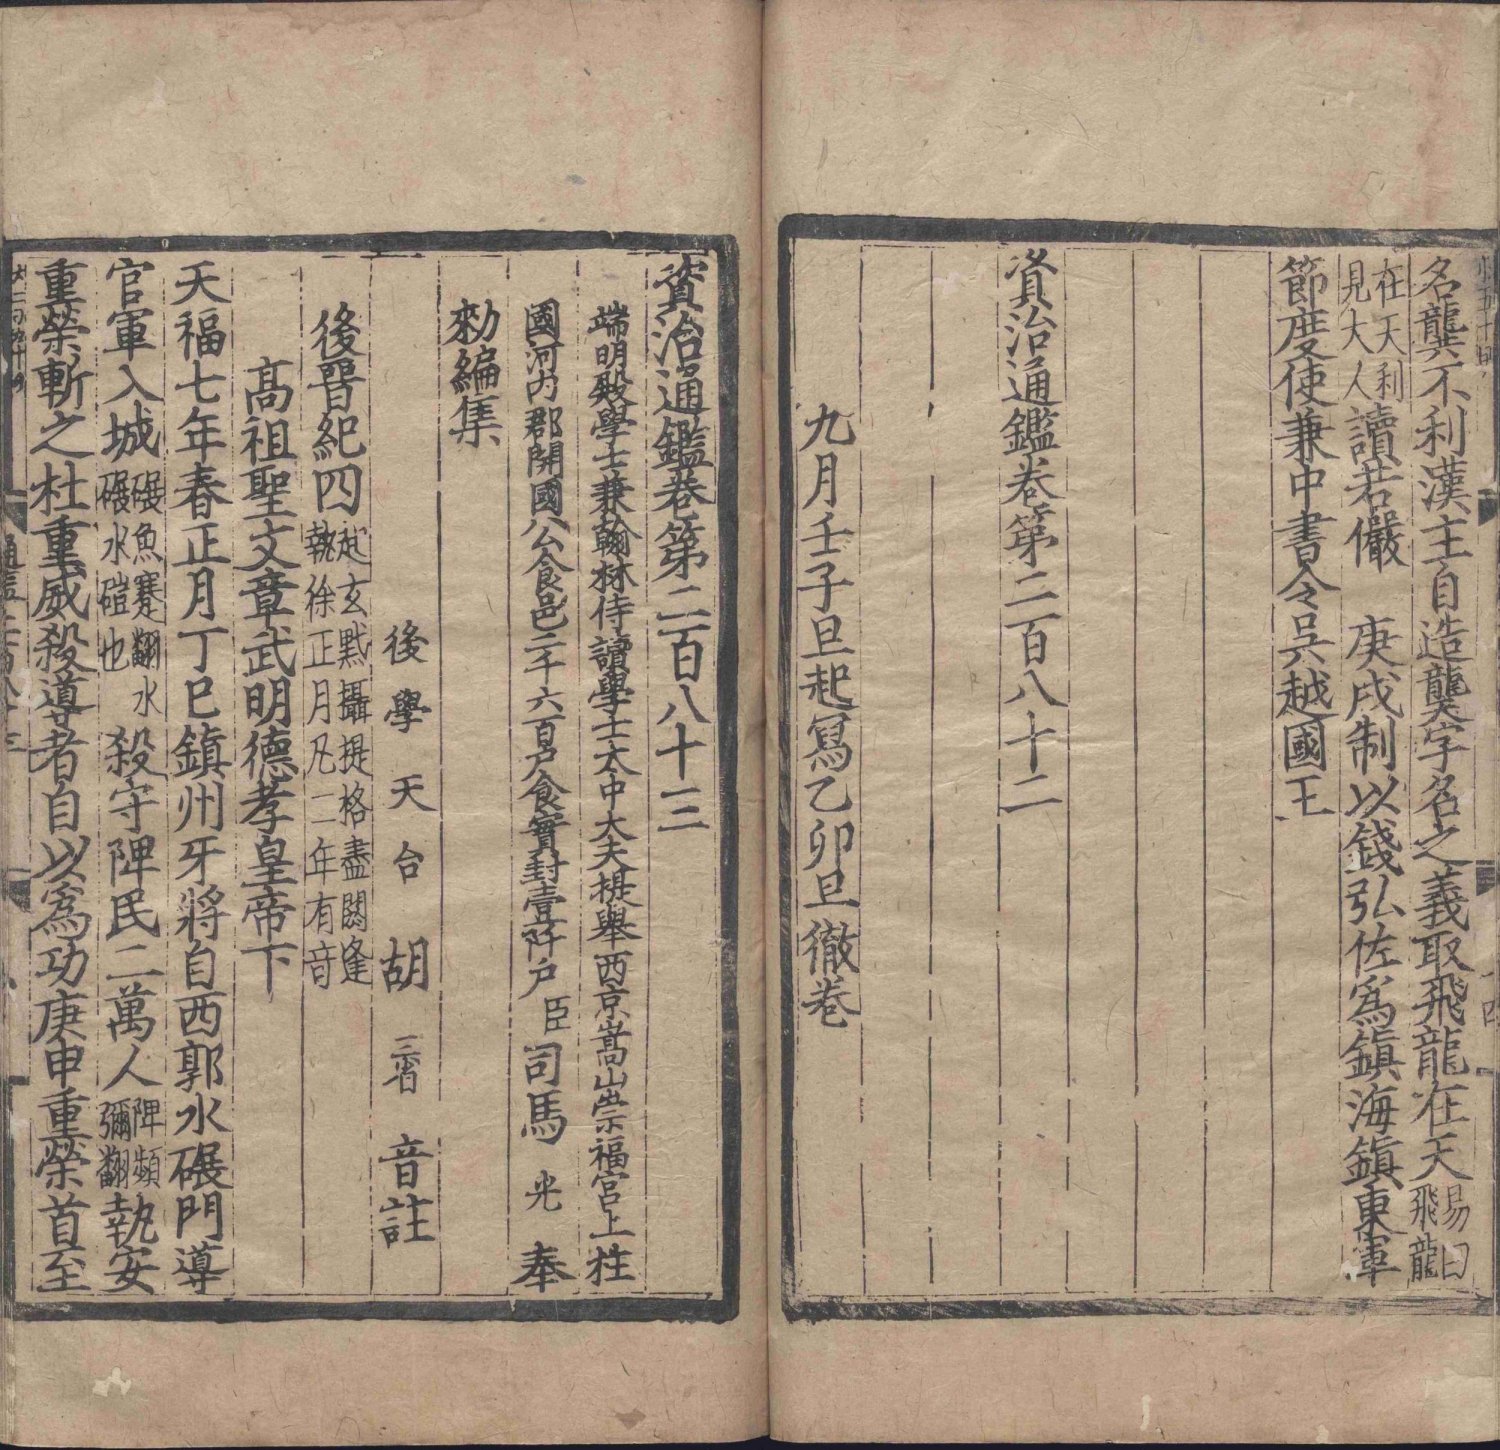 名龑不利漢主自造龑字名之義取飛龍在天易曰飛龍
在天利見大人讀若儼　庚戌制以錢弘佐爲鎮海鎮東軍
節度使兼中書令吳越國王
資治通鑑卷第二百八十二
九月壬子旦起寫乙卯旦徹卷
資治通鑑卷第二百八十三
端明殿學士兼翰林侍讀學士太中大夫提舉西京嵩山崇福宮上柱
國河内郡開國公食邑二千六百戶食實封壹阡戶臣司馬光奉
勑編集
後學天台胡三省音註
後晉紀四起玄黓攝提格盡閼逢執徐正月凡二年有音
高祖聖文章武明德孝皇帝下
天福七年春正月丁巳鎮州牙將自西郭水碾門導
官軍入城碾魚蹇翻水碾水磑也殺守陴民二萬人陴頻彌翻執安
重榮斬之杜重威殺導者自以爲功庚申重榮首至